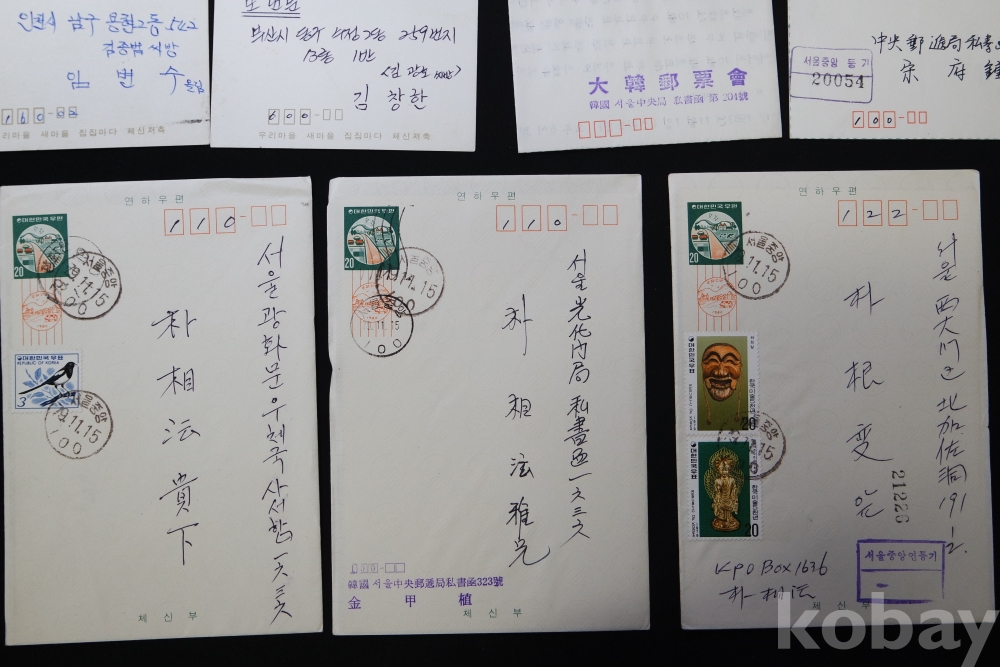 인천시 남구 용현2동 542
임 변 수
160-
우리마을 새마을 집집마다 체신저축
부산시 남구 259번지
13통 1반
김 창 한
600-
우리마을 새마을 집집마다 체신저축
大韓郵票會
韓國 서울中央局 私書函 第 204號
中央郵遞局私書
宋 府 鍾
서울중앙 등기
20054
100-
연하우편
대한민국우편
20
110-
서울중앙
79.11.15
100
대한민국우표
REPUBLIC OF KOREA
3
서울중앙
79.11.15
100
서울 광화문우체국 사서함 一六三六
朴相泫 貴下
체신부
연하우편
대한민국우편
20
110-
79.11.15
100
11.15
100
서울 光化门局 私書函 一六三六
朴相泫 雅兄
韓國 서울中央郵遞局私書函323號
金甲植
체신부
연하우편
대한민국우편
20
122-
서울중앙
11.15
100
대한민국우표
20
대한민국우표
20
서울 西大门区 北加佐洞 191
朴根変
21226
서울중앙연등기
KPO Box 1636
朴相泫
체신부
kobay